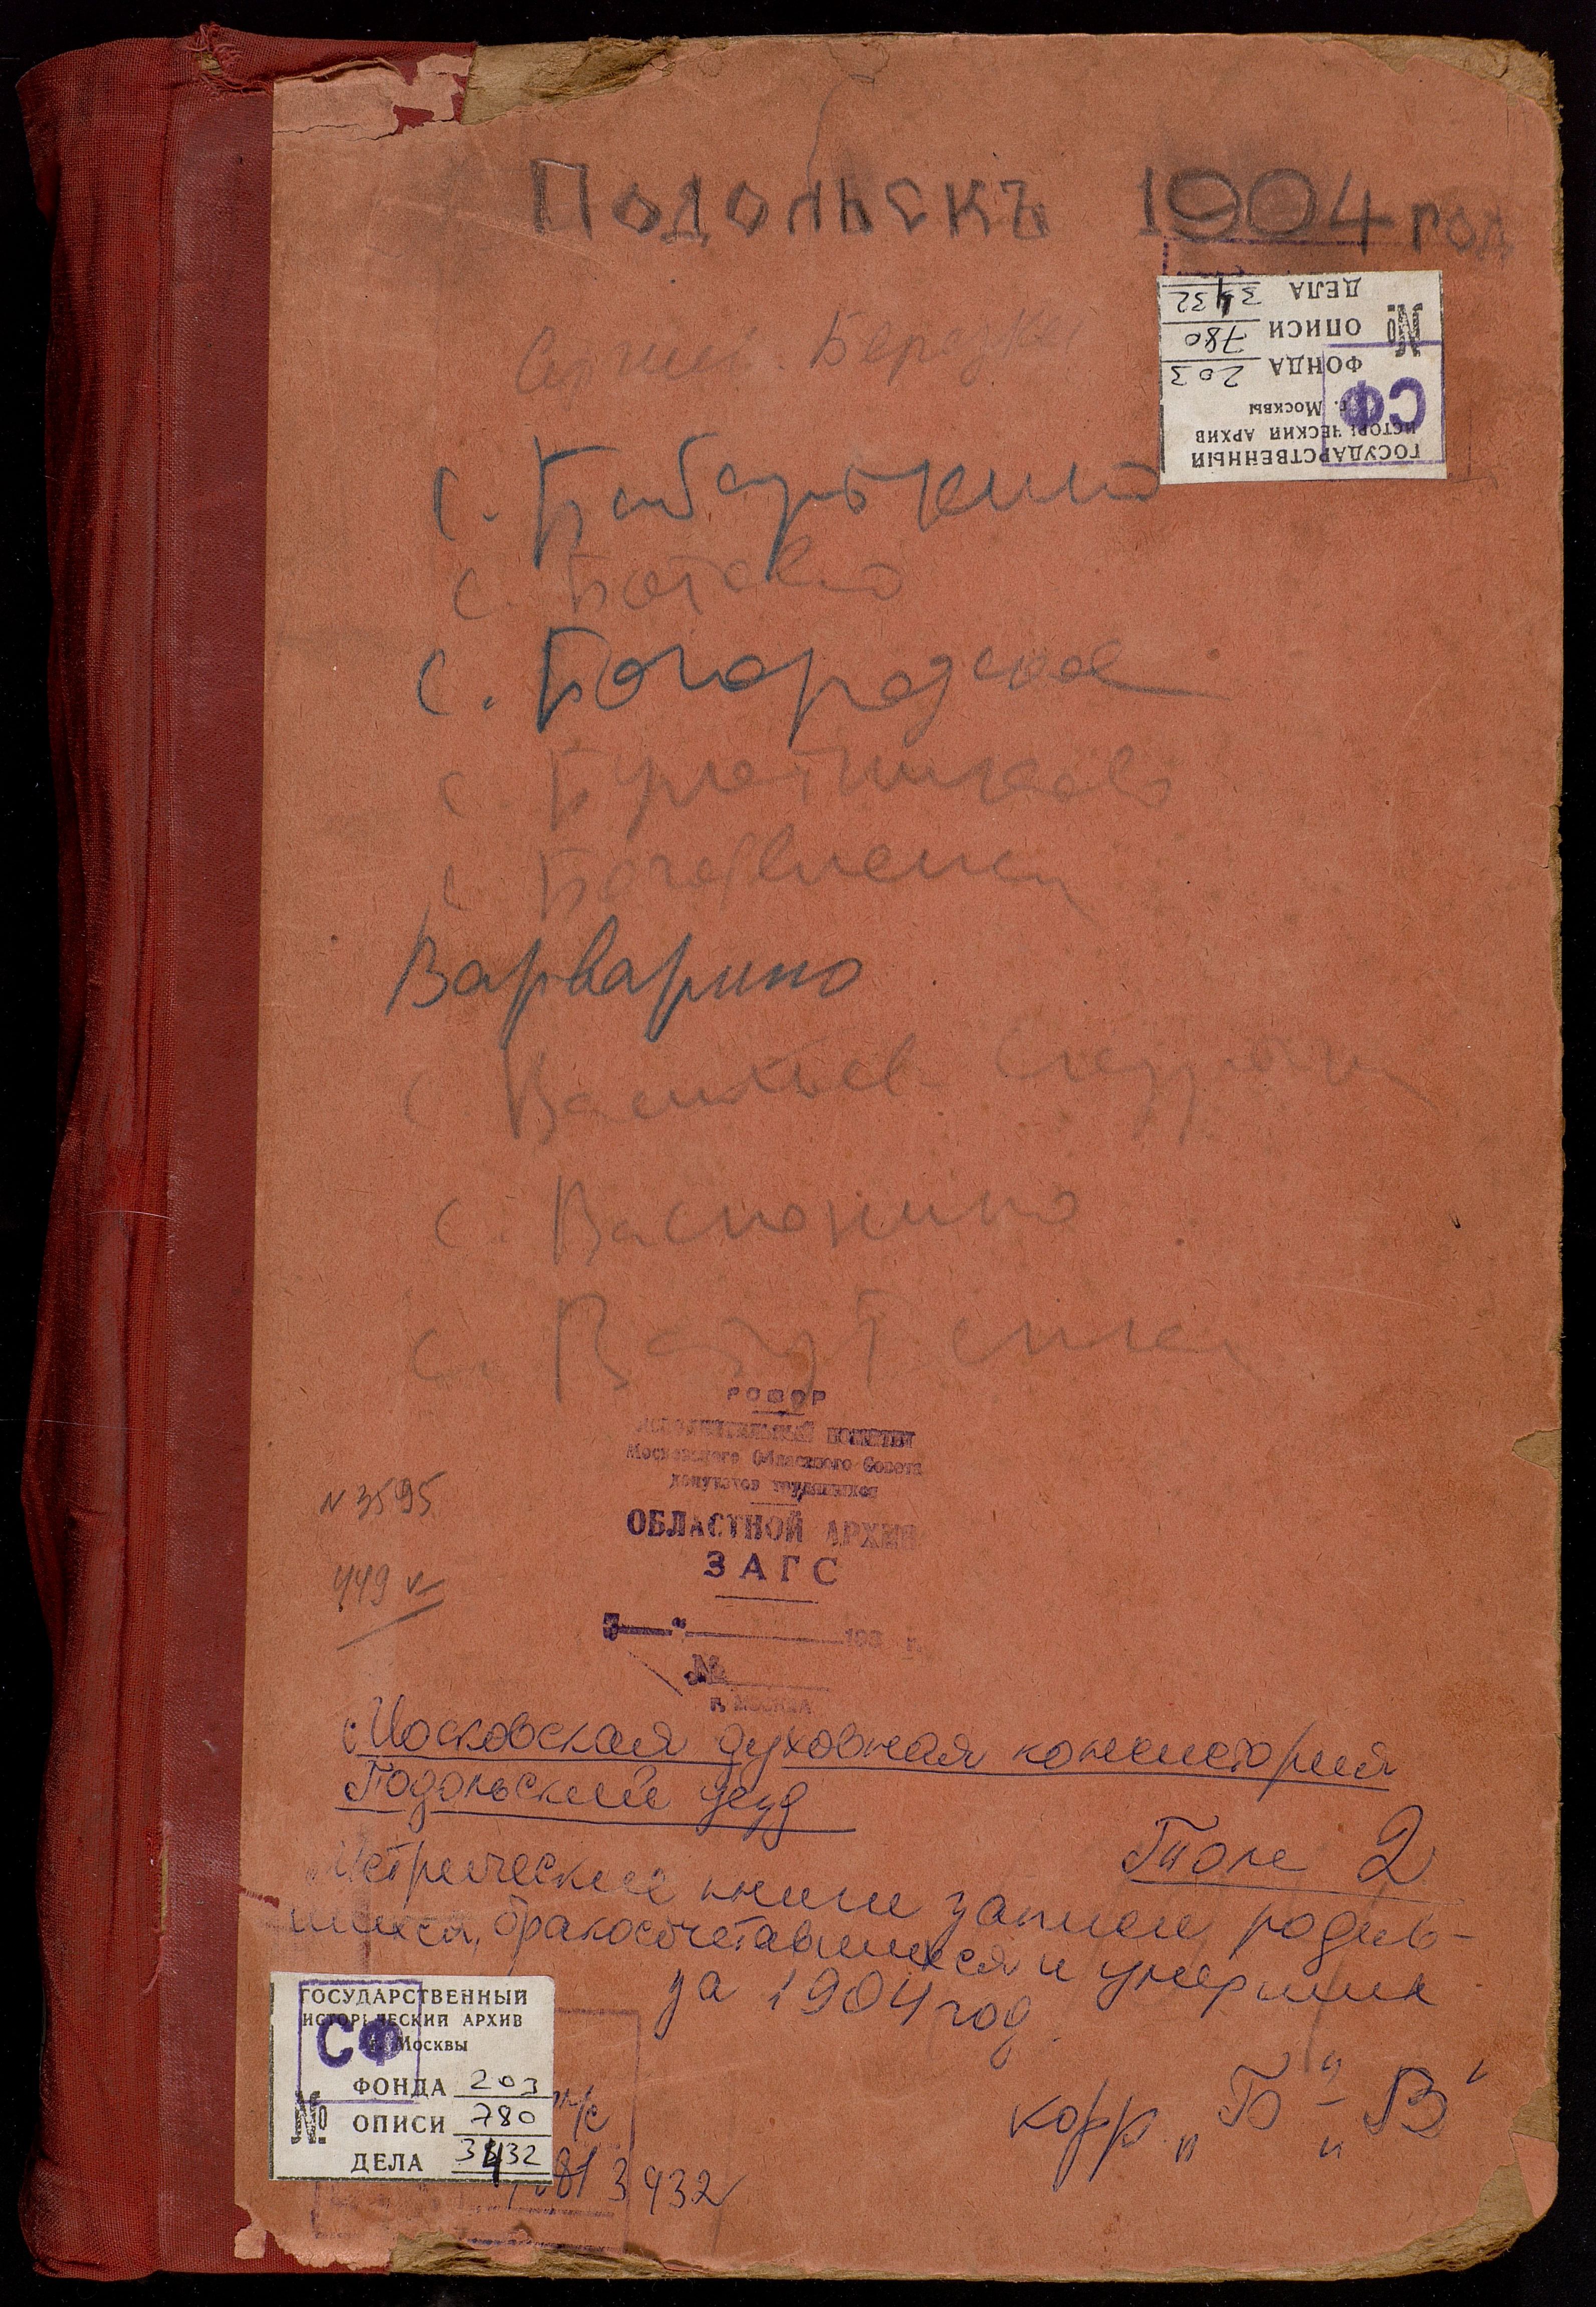 Подольскъ 1904 год
ДЕЛА 3432
№ ОПИСИ 780
ФОНДА 203
г. Москвы
ИСТОРИЧЕСКИЙ АРХИВ
ГОСУДАРСТВЕННЫЙ
СФ
Березки
с. Бабенькино
с. Батово
с. Богородское
с. Булатниково
с. Богоявленск
Варварино
с. Васильев
с. Васюнино
с. Ватутенки
РСФСР
ИСПОЛНИТЕЛЬНЫЙ КОМИТЕТ
Московского Областного Совета
депутатов трудящихся
ОБЛАСТНОЙ АРХИВ
ЗАГС
N 3595
449 v
193 г.
№
г. МОСКВА
Московская духовная консистория
Подольский уезд
Том 2
Метрические книги записи родив-
шихся, бракосочетавшихся и умерших
за 1904 год.
корр. „Б" – „В"
ГОСУДАРСТВЕННЫЙ
ИСТОРИЧЕСКИЙ АРХИВ
г. Москвы
СФ
ФОНДА 203
№ ОПИСИ 780
ДЕЛА 3432
3432